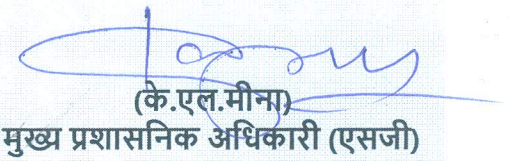 (के.एल.मीना)
मुख्य प्रशासनिक अधिकारी (एसजी)